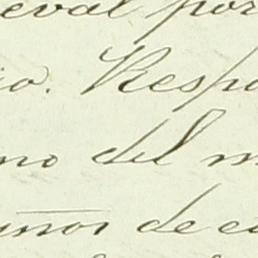 eval por
io. Respo
no del m
unos de e